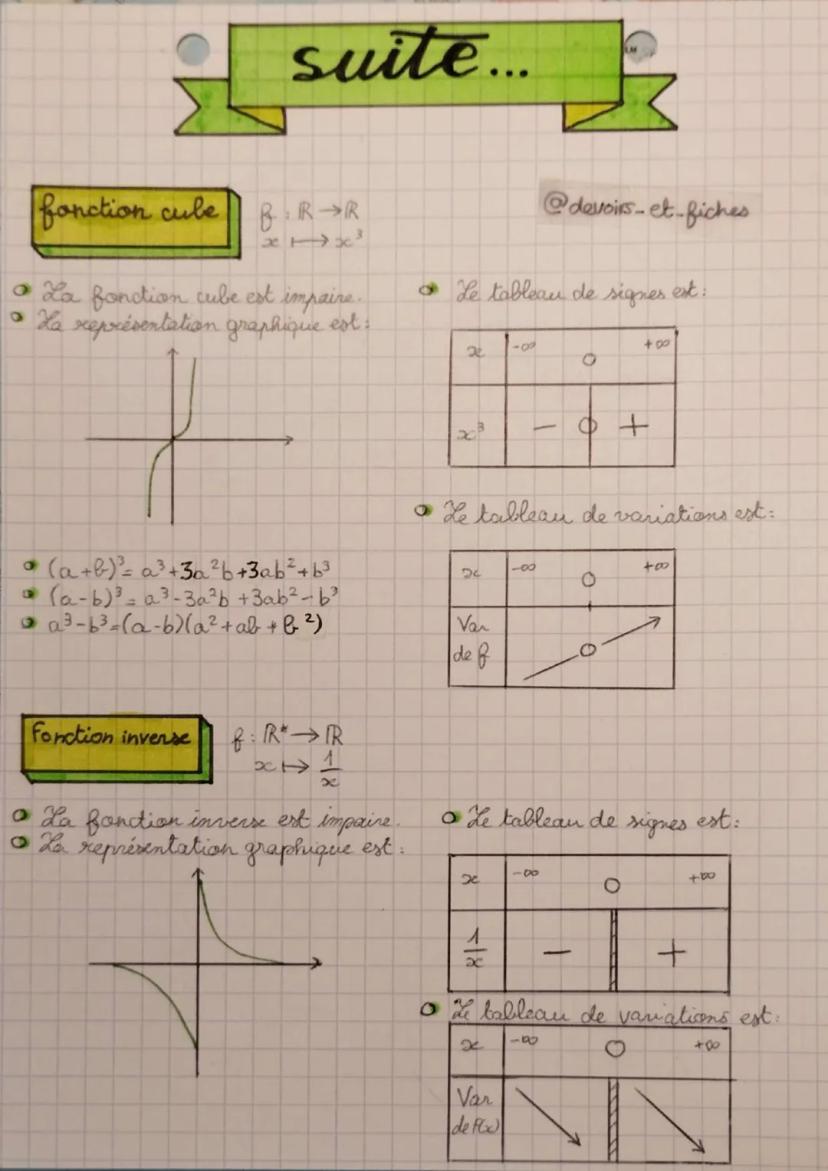 suite...
fonction cube
f : ℝ → ℝ
x ⟼ x³
@devoirs_et_fiches
La fonction cube est impaire.
La représentation graphique est :
Le tableau de signes est :
x -∞ 0 +∞
x³ - 0 +
Le tableau de variations est :
x -∞ 0 +∞
Var
de f 0
(a+b)³ = a³+3a²b+3ab²+b³
(a-b)³ = a³-3a²b+3ab²-b³
a³-b³=(a-b)(a²+ab+b²)
Fonction inverse
f : ℝ* → ℝ
x ⟼ 1/x
La fonction inverse est impaire.
La représentation graphique est :
Le tableau de signes est :
x -∞ 0 +∞
1/x - +
Le tableau de variations est :
x -∞ 0 +∞
Var
de f(x)